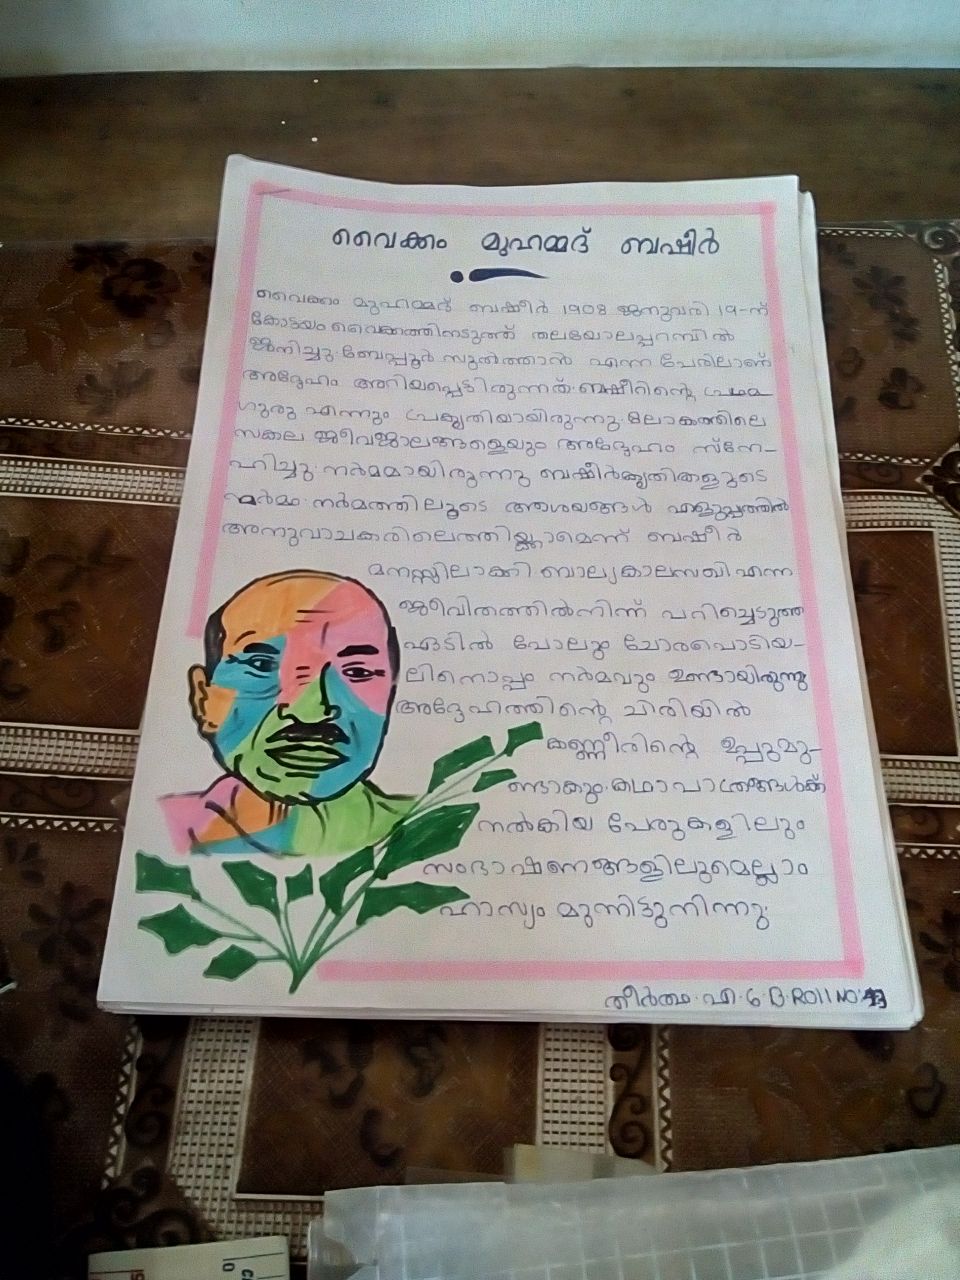 വൈക്കം മുഹമ്മദ് ബഷീർ
വൈക്കം മുഹമ്മദ് ബഷീർ 1908 ജനുവരി 19-ന്
കോട്ടയം വൈക്കത്തിനടുത്ത് തലയോലപ്പറമ്പിൽ
ജനിച്ചു. ബേപ്പൂർ സുൽത്താൻ എന്ന പേരിലാണ്
അദ്ദേഹം അറിയപ്പെട്ടിരുന്നത്. ബഷീറിന്റെ പ്രഥമ
ഗുരു എന്നും പ്രകൃതിയായിരുന്നു. ലോകത്തിലെ
സകല ജീവജാലങ്ങളെയും അദ്ദേഹം സ്നേ-
ഹിച്ചു. നർമമായിരുന്നു ബഷീർക്കൃതികളുടെ
മർമം. നർമത്തിലൂടെ ആശയങ്ങൾ എളുപ്പത്തിൽ
അനുവാചകരിലെത്തിയ്ക്കാമെന്ന് ബഷീർ
മനസ്സിലാക്കി ബാല്യകാലസഖി എന്ന
ജീവിതത്തിൽനിന്ന് പറിച്ചെടുത്ത
ഏടിൽ പോലും ചോരപൊടിയ-
ലിനൊപ്പം നർമവും ഉണ്ടായിരുന്നു
അദ്ദേഹത്തിന്റെ ചിരിയിൽ
കണ്ണീരിന്റെ ഉപ്പുമു-
ണ്ടാകും. കഥാപാത്രങ്ങൾക്ക്
നൽകിയ പേരുകളിലും
സംഭാഷണങ്ങളിലുമെല്ലാം
ഹാസ്യം മുന്നിട്ടുനിന്നു.
തീർത്ഥ. എ. 6. B. Roll NO: